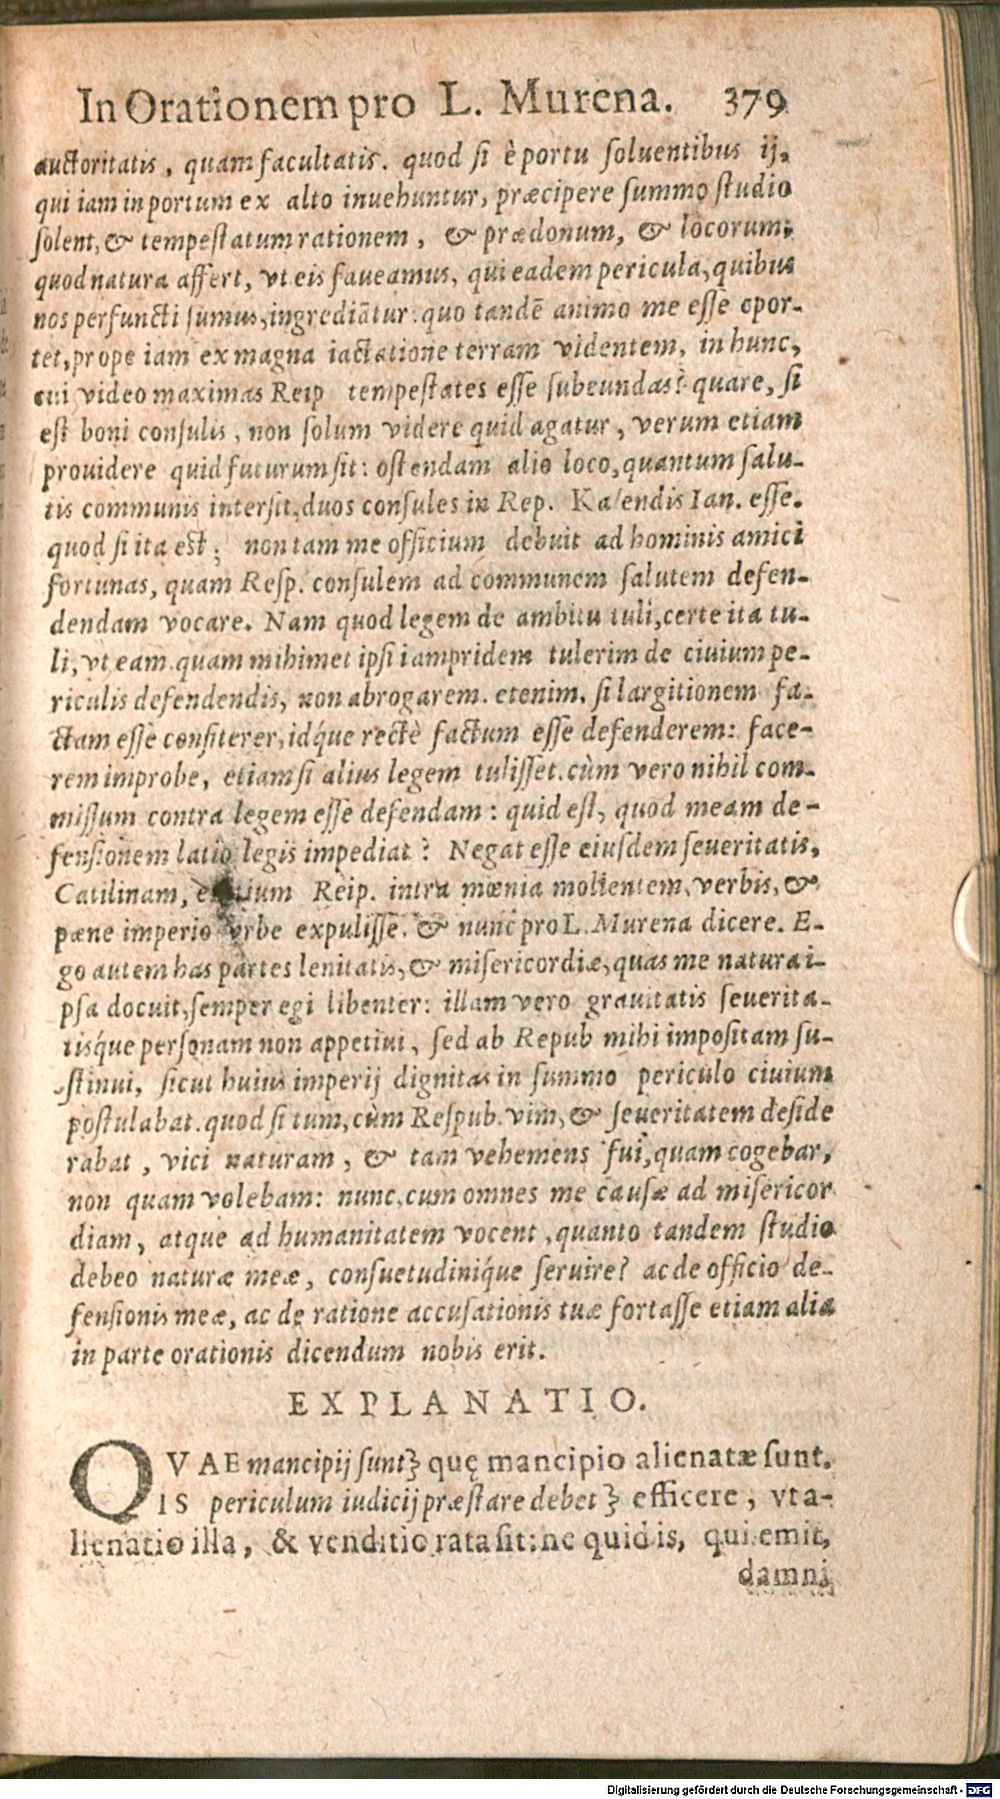 In Orationem pro L. Murena. 379
auctoritatis, quam facultatis. quod si è portu soluentibus ij,
qui iam in portum ex alto inuehuntur, præcipere summo studio
solent, & tempestatum rationem, & prædonum, & locorum:
quod natura affert, vt eis faueamus, qui eadem pericula, quibus
nos perfuncti sumus, ingrediãtur: quo tandẽ animo me esse opor-
tet, prope iam ex magna iactatione terram videntem, in hunc,
cui video maximas Reip tempestates esse subeundas? quare, si
est boni consulis, non solum videre quid agatur, verum etiam
prouidere quid futurum sit: ostendam alio loco, quantum salu-
tis communis intersit, duos consules in Rep. Kalendis Ian. esse.
quod si ita est; non tam me officium debuit ad hominis amici
fortunas, quam Resp. consulem ad communem salutem defen-
dendam vocare. Nam quod legem de ambitu tuli, certe ita tu-
li, vt eam quam mihimet ipsi iampridem tulerim de ciuium pe-
riculis defendendis, non abrogarem. etenim, si largitionem fa-
ctam esse confiterer, idq́ue rectè factum esse defenderem: face-
rem improbe, etiamsi alius legem tulisset. cùm vero nihil com-
missum contra legem esse defendam: quid est, quod meam de-
fensionem latio legis impediat? Negat esse eiusdem seueritatis,
Catilinam, exitium Reip. intra mœnia molientem, verbis, &
pæne imperio vrbe expulisse, & nunc pro L. Murena dicere. E-
go autem has partes lenitatis, & misericordiæ, quas me natura i-
psa docuit, semper egi libenter: illam vero grauitatis seuerita-
tisq́ue personam non appetiui, sed ab Repub mihi impositam su-
stinui, sicut huius imperij dignitas in summo periculo ciuium
postulabat. quod si tum, cùm Respub. vim, & seueritatem deside
rabat, vici naturam, & tam vehemens fui, quam cogebar,
non quam volebam: nunc, cum omnes me causæ ad misericor
diam, atque ad humanitatem vocent, quanto tandem studio
debeo naturæ meæ, consuetudiniq́ue seruire? ac de officio de-
fensionis meæ, ac de ratione accusationis tuæ fortasse etiam alia
in parte orationis dicendum nobis erit.
EXPLANATIO.
QVAE mancipij sunt⁊ quę mancipio alienatæ sunt.
IS periculum iudicij præstare debet⁊ efficere, vt a-
lienatio illa, & venditio rata sit: ne quid is, qui emit,
damni
Digitalisierung gefördert durch die Deutsche Forschungsgemeinschaft - DFG